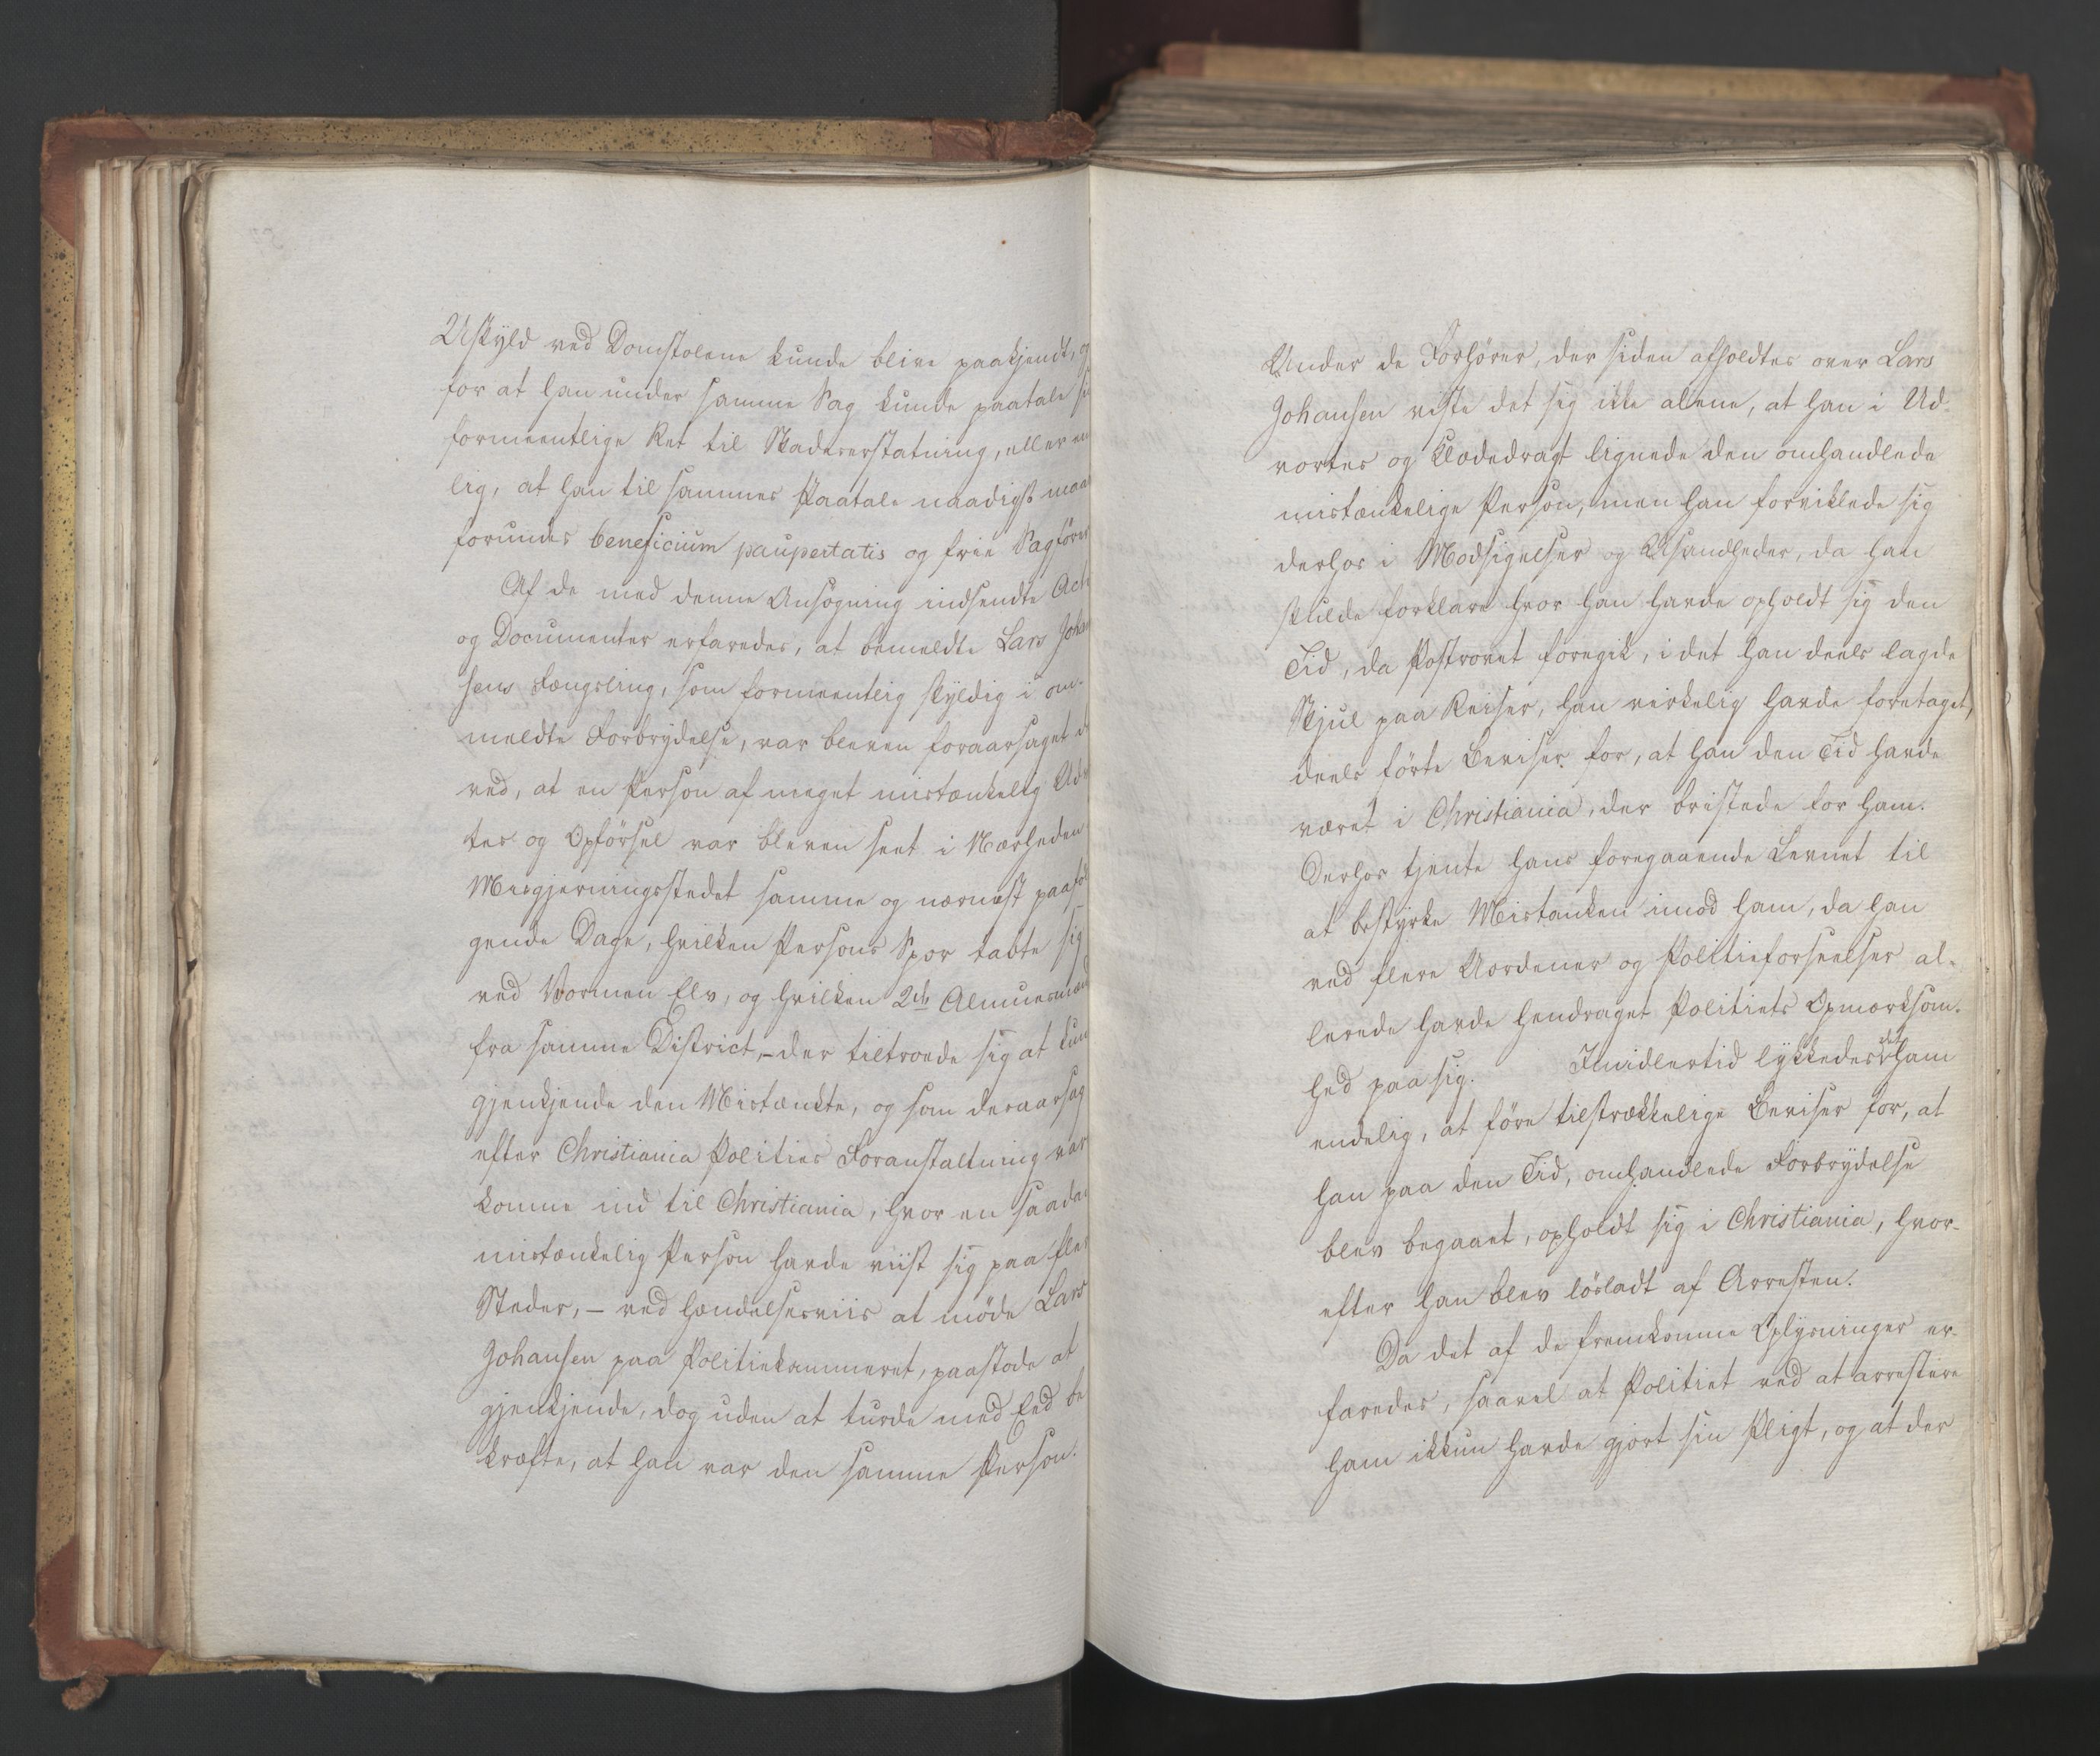 Uskyld ved Domstolene kunde blive paakjendt, og
for at han under samme Sag kunde paatale si
formeentlige Ret til Skadeserstatning, eller en
lig, at han til sammes Paatale naadigst maa
forundes beneficium paupertatis og frie Sagförer
Af de med denne Ansøgning indsendte Act
og Documenter erfaredes, at bemeldte Lars Johan
sens Fængsling, som formeentlig skyldig i om-
meldte Forbrydelse, var bleven foraarsaget d
ved, at en Person af meget mistænkelig Udv
tes og Opførsel var bleven seet i Nærheden
Misgjerningsstedet samme og nærmest paaføl
gende Dage, hvilken Persons Spor tabte sig
ved Vormen Elv, og hvilken 2de Almuesmænd
fra samme District, – der tiltroede sig at kun
gjenkjende den Mistænkte, og som desaarsag
efter Christiania Polities Foranstaltning var
komne ind til Christiania, hvor en saadan
mistænkelig Person havde viist sig paa fler
Steder, – ved hændelsesviis at møde Lars
Johansen paa Politiekammeret, paastode at
gjenkjende, dog uden at turde med Eed be
kræfte, at han var den samme Person.
Under de Forhører, der siden afholdtes over Lars
Johansen viste det sig ikke alene, at han i Ud-
vortes og Klædedragt lignede den omhandlede
mistænkelige Person, men han forviklede sig
derhos i Modsigelser og Usandheder, da han
skulde forklare hvor han havde opholdt sig den
Tid, da Postrovet foregik, i det han deels lagde
Skjul paa Reiser, han virkelig havde foretaget,
deels førte Beviser for, at han den Tid havde
været i Christiania, der bristede for ham.
Derhos tjente hans foregaaende Levnet til
at bestyrke Mistanken imod ham, da han
ved flere Uordener og Politieforseelser al-
lerede havde hendraget Politiets Opmærksom-
hed paa sig. Imidlertid lykkedes det ham
endelig, at føre tilstrækkelige Beviser for, at
han paa den Tid, omhandlede Forbrydelse
blev begaaet, opholdt sig i Christiania, hvor-
efter han blev løsladt af Arresten.
Da det af de fremkomne Oplysninger er-
faredes, saavel at Politiet ved at arrestere
ham ikkun havde gjort sin Pligt, og at der